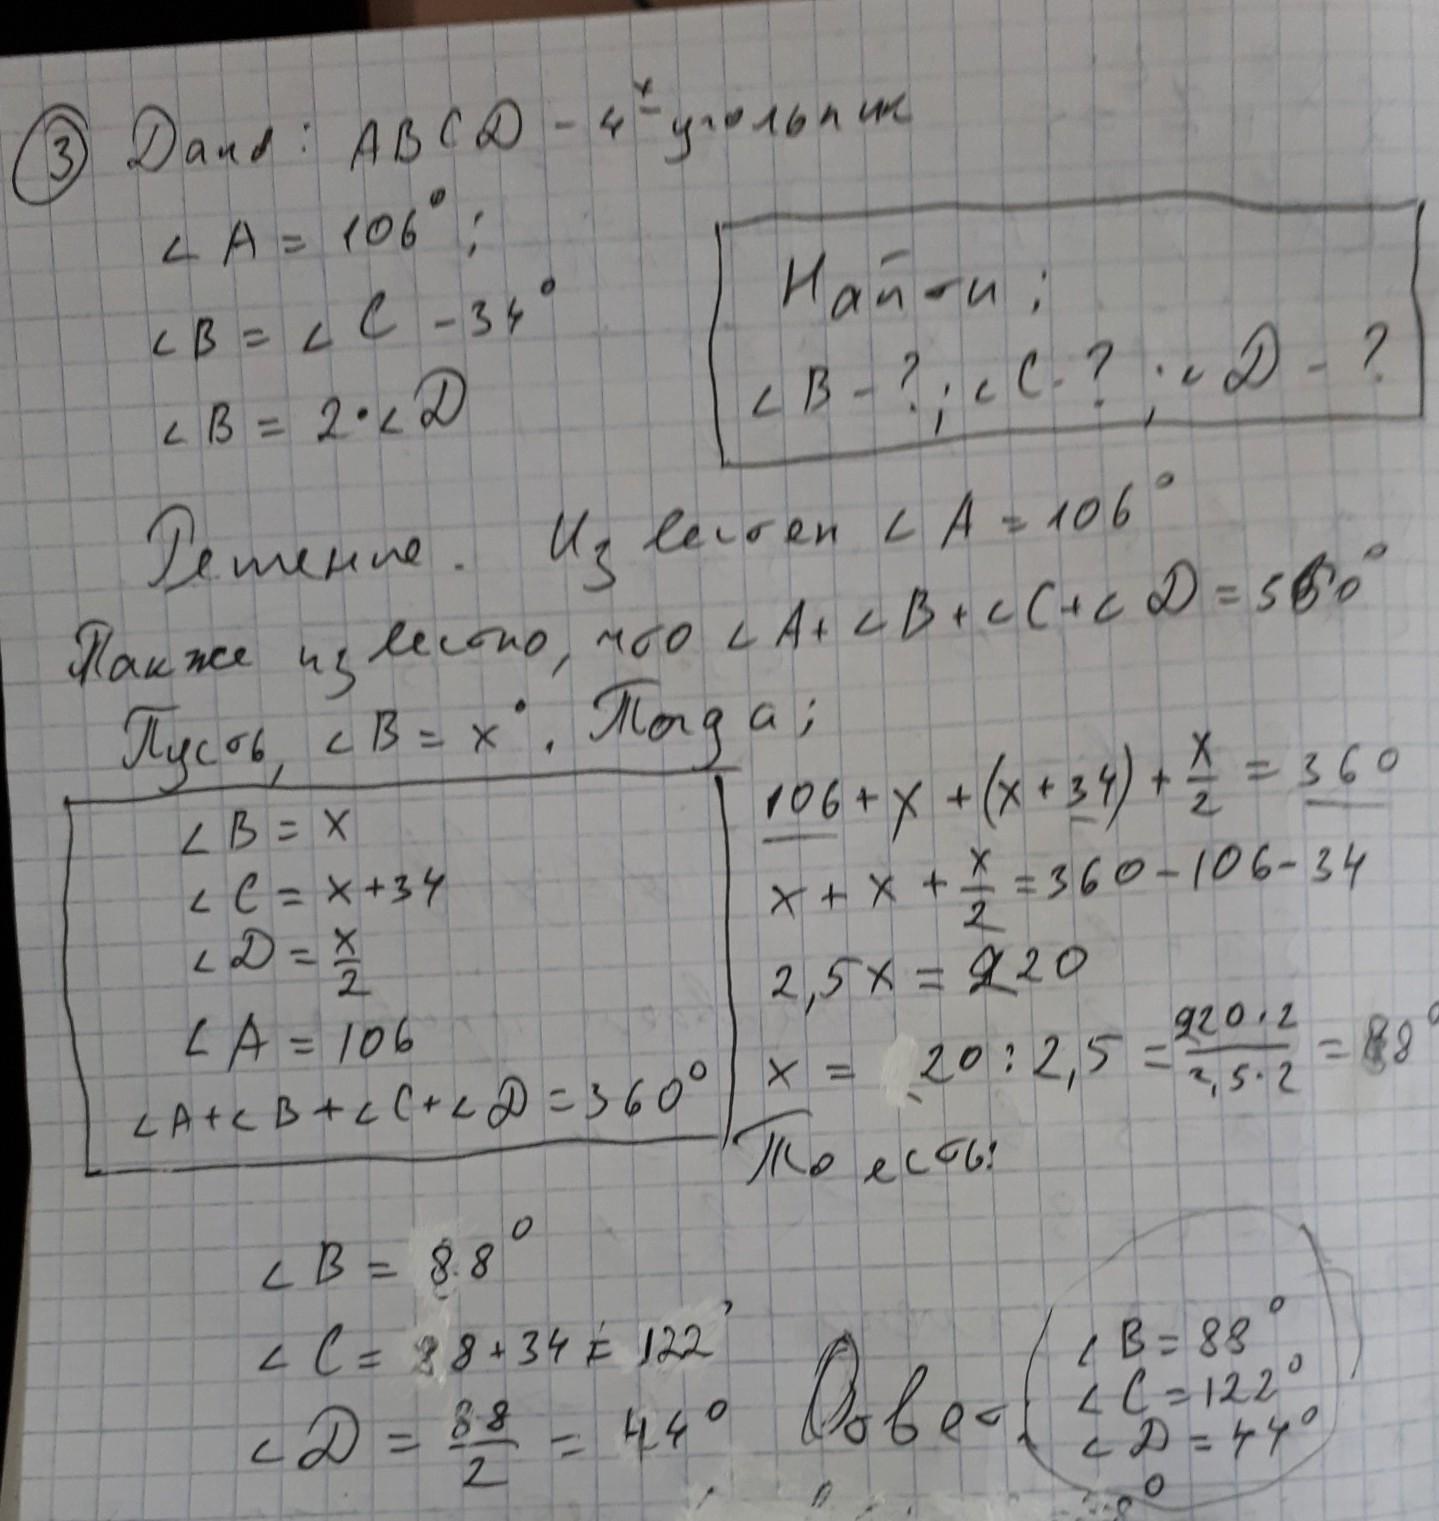 ③ Дано: ABCD - 4х угольник
∠A = 106°;
∠B = ∠C - 34°
∠B = 2·∠D
Найти:
∠B - ?; ∠C - ?; ∠D - ?
Решение. Известен ∠A = 106°
Также известно, что ∠A + ∠B + ∠C + ∠D = 360°
Пусть, ∠B = x°. Тогда:
∠B = x
∠C = x + 34
∠D = x/2
∠A = 106
∠A + ∠B + ∠C + ∠D = 360°
106 + x + (x + 34) + x/2 = 360
x + x + x/2 = 360 - 106 - 34
2,5x = 220
x = 20 : 2,5 = 220·2/2,5·2 = 88°
То есть:
∠B = 88°
∠C = 88 + 34 = 122°
∠D = 88/2 = 44°
Ответ:
∠B = 88°
∠C = 122°
∠D = 44°